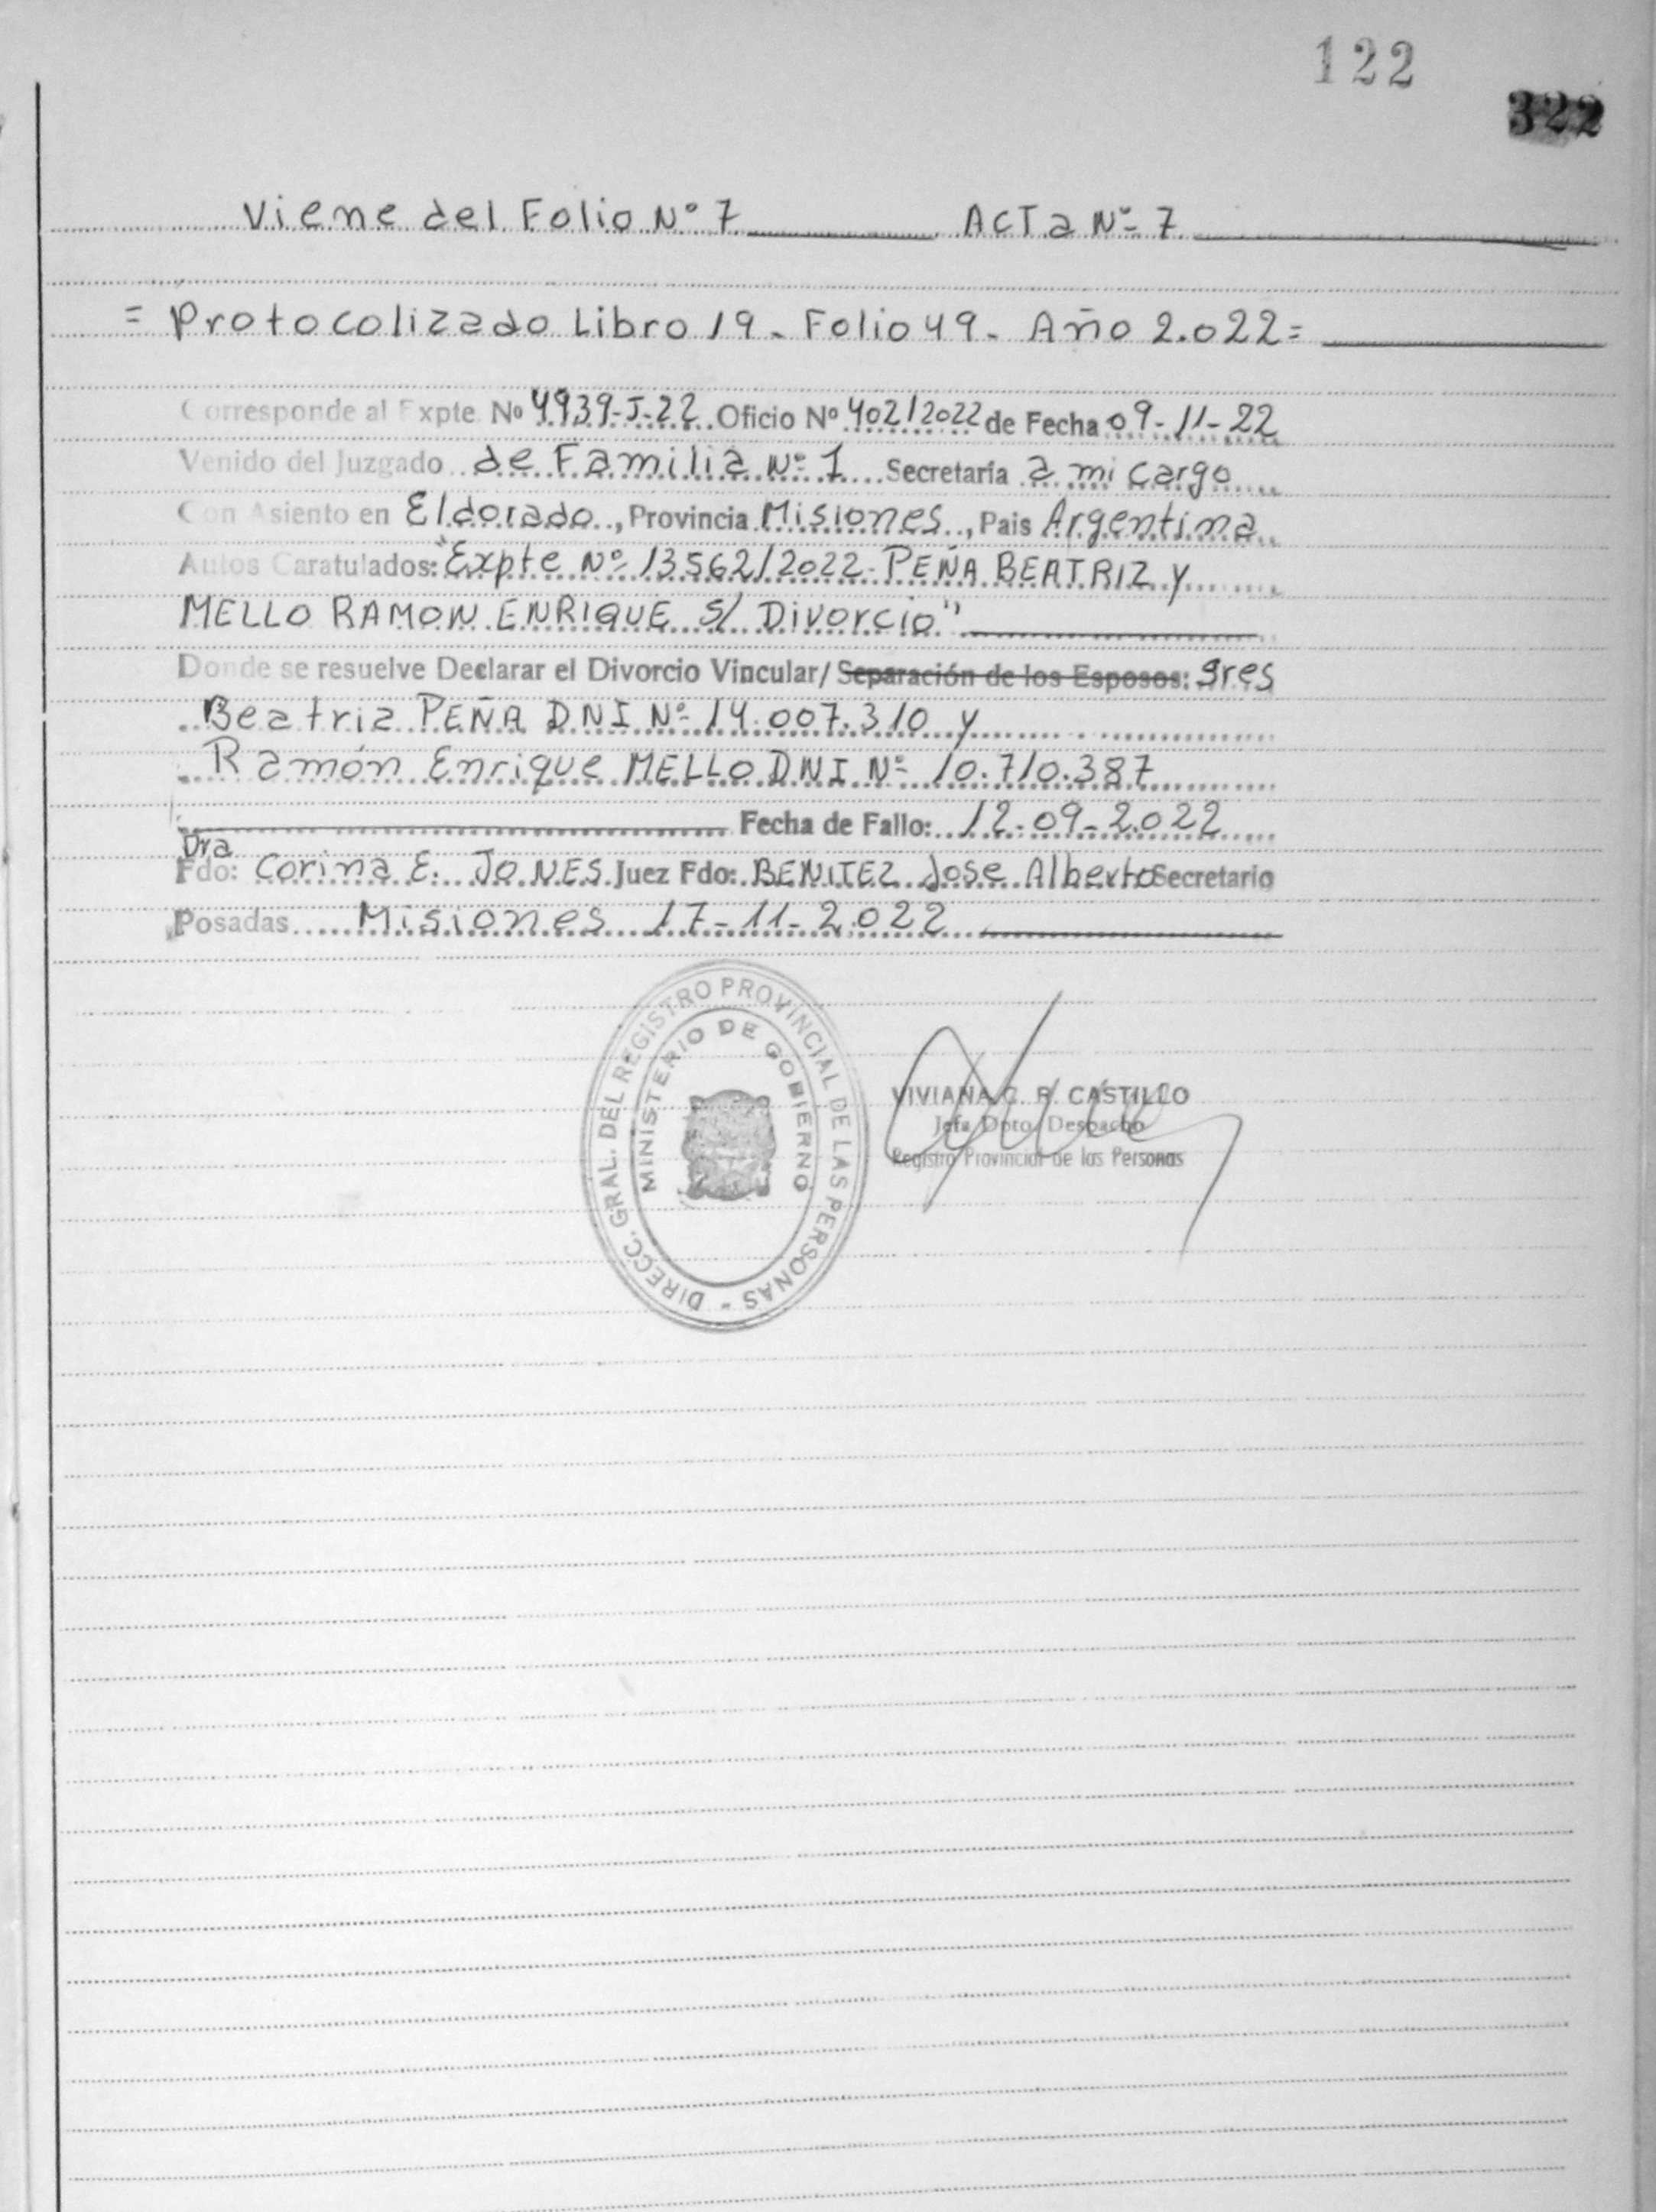 122
322
Viene del Folio Nº 7 Acta Nº 7
= Protocolizado Libro 19 - Folio 49 - Año 2.022 =
Corresponde al Expte. Nº 4939-J-22 Oficio Nº 402/2022 de Fecha 09-11-22
Venido del Juzgado de Familia Nº 1 Secretaría a mi cargo
Con Asiento en Eldorado, Provincia Misiones, Pais Argentina
Autos Caratulados: "Expte Nº 13562/2022 - PEÑA BEATRIZ y
MELLO RAMON ENRIQUE S/ Divorcio"
Donde se resuelve Declarar el Divorcio Vincular/ Separación de los Esposos: Sres
Beatriz PEÑA DNI Nº 14.007.310 y
Ramón Enrique MELLO DNI Nº 10.710.387
Fecha de Fallo: 12-09-2022
Dra
Fdo: Corina E. JONES Juez Fdo: BENITEZ Jose Alberto Secretario
Posadas Misiones 17-11-2.022
DIRECC. GRAL. DEL REGISTRO PROVINCIAL DE LAS PERSONAS -
MINISTERIO DE GOBIERNO
VIVIANA C. R. CASTILLO
Jefa Dpto. Despacho
Registro Provincial de las Personas